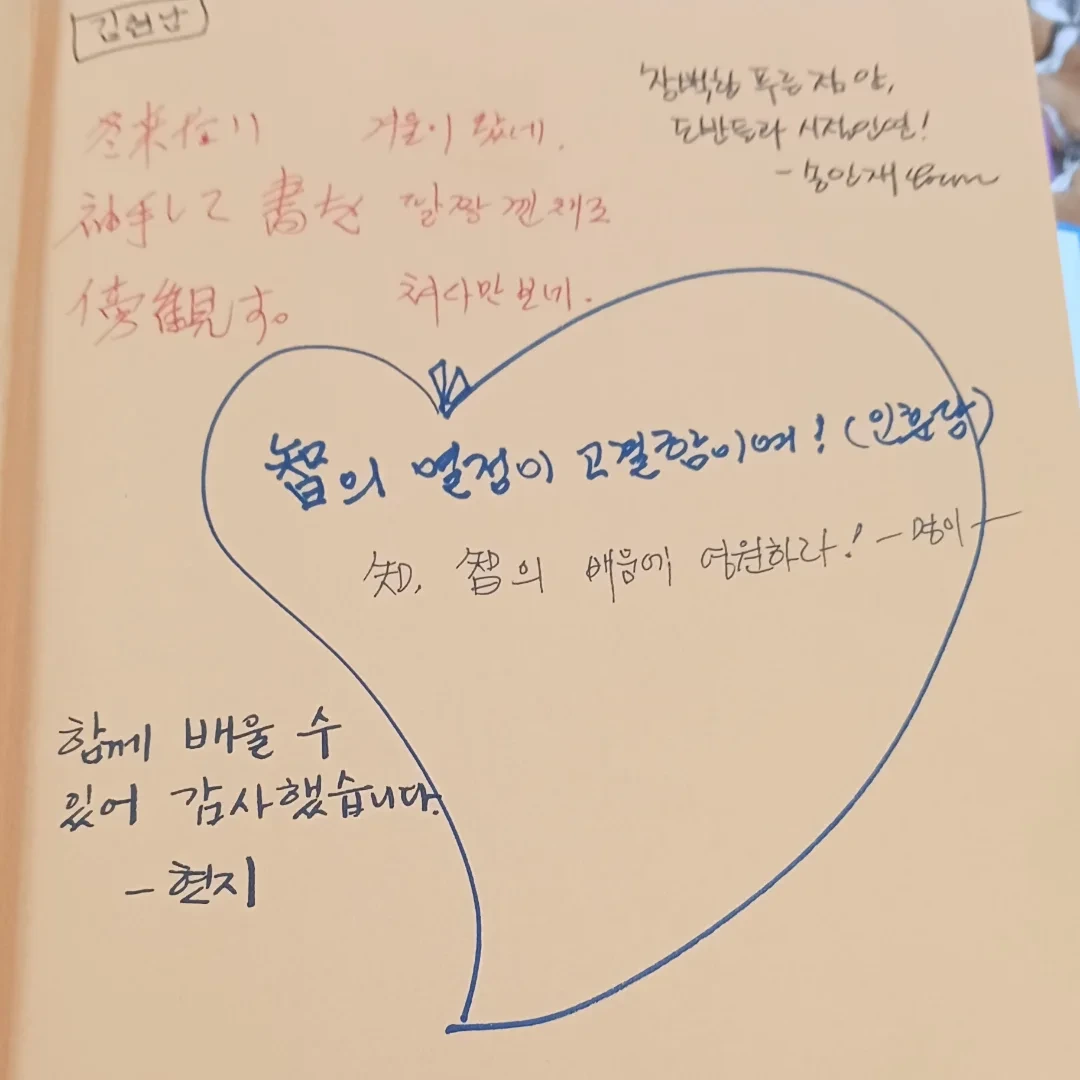 김현남
창백한 푸른 점 안,
도반들과 시절인연!
- 몽인재
冬来たり 겨울이 왔네.
袖手して書を 팔짱 낀 채로
傍観す。 쳐다만 보네.
智의 열정이 고결함이여! (인환당)
知, 智의 배움에 영원하라! - 명이 -
함께 배울 수
있어 감사했습니다.
- 현지